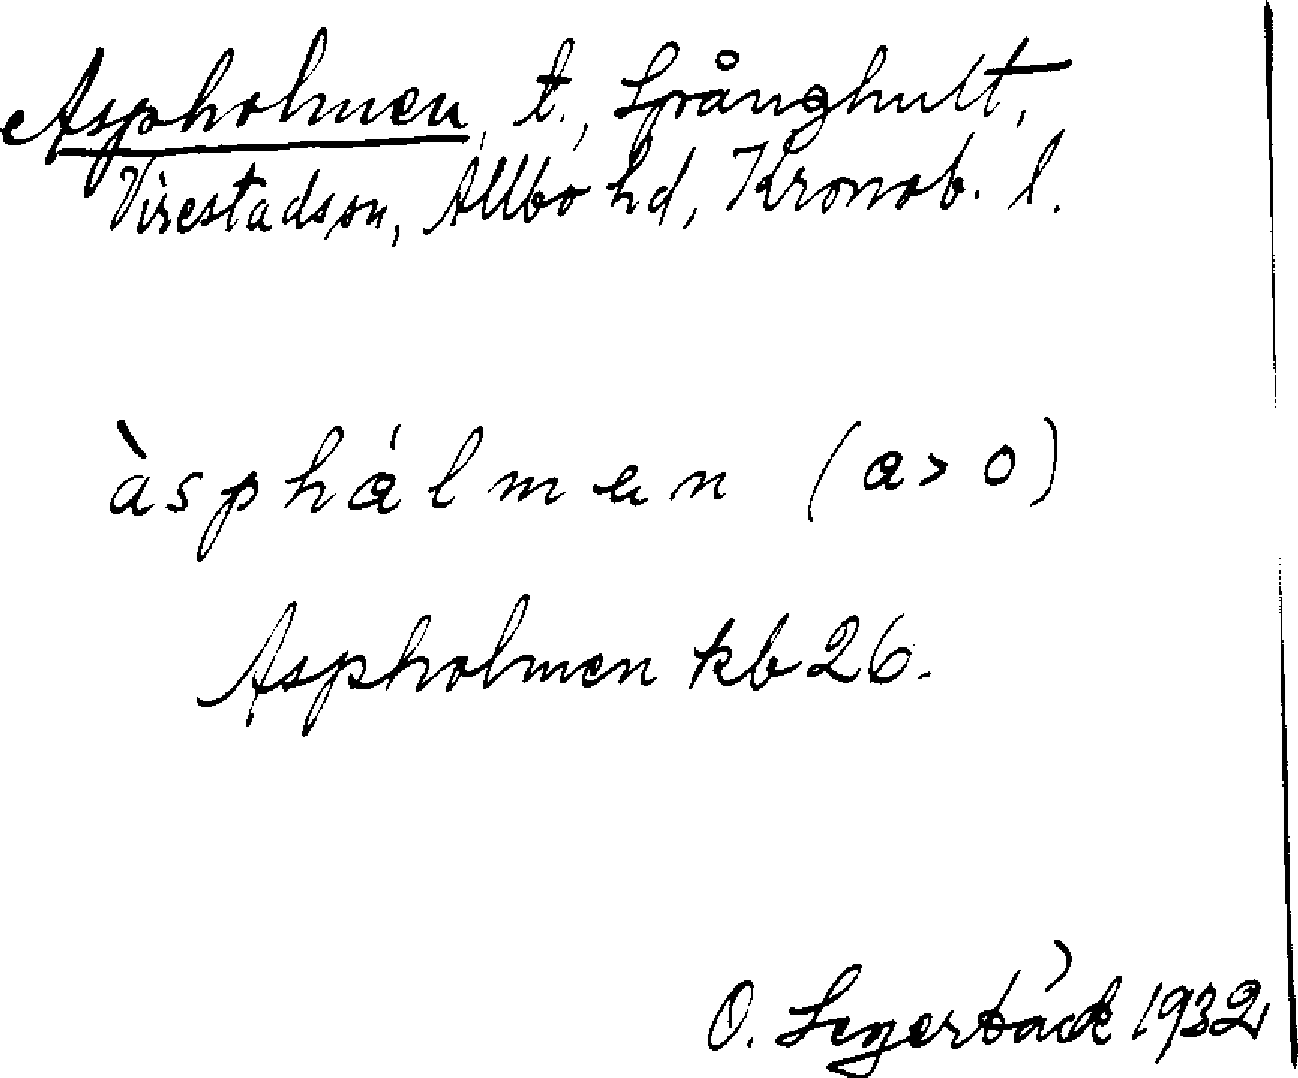 Aspholmen, t., Spånghult,
Virestads sn, Allbo hd, Kronob. l.
àsphálmen (a > o)
Aspholmen kb 26.
O. 1932